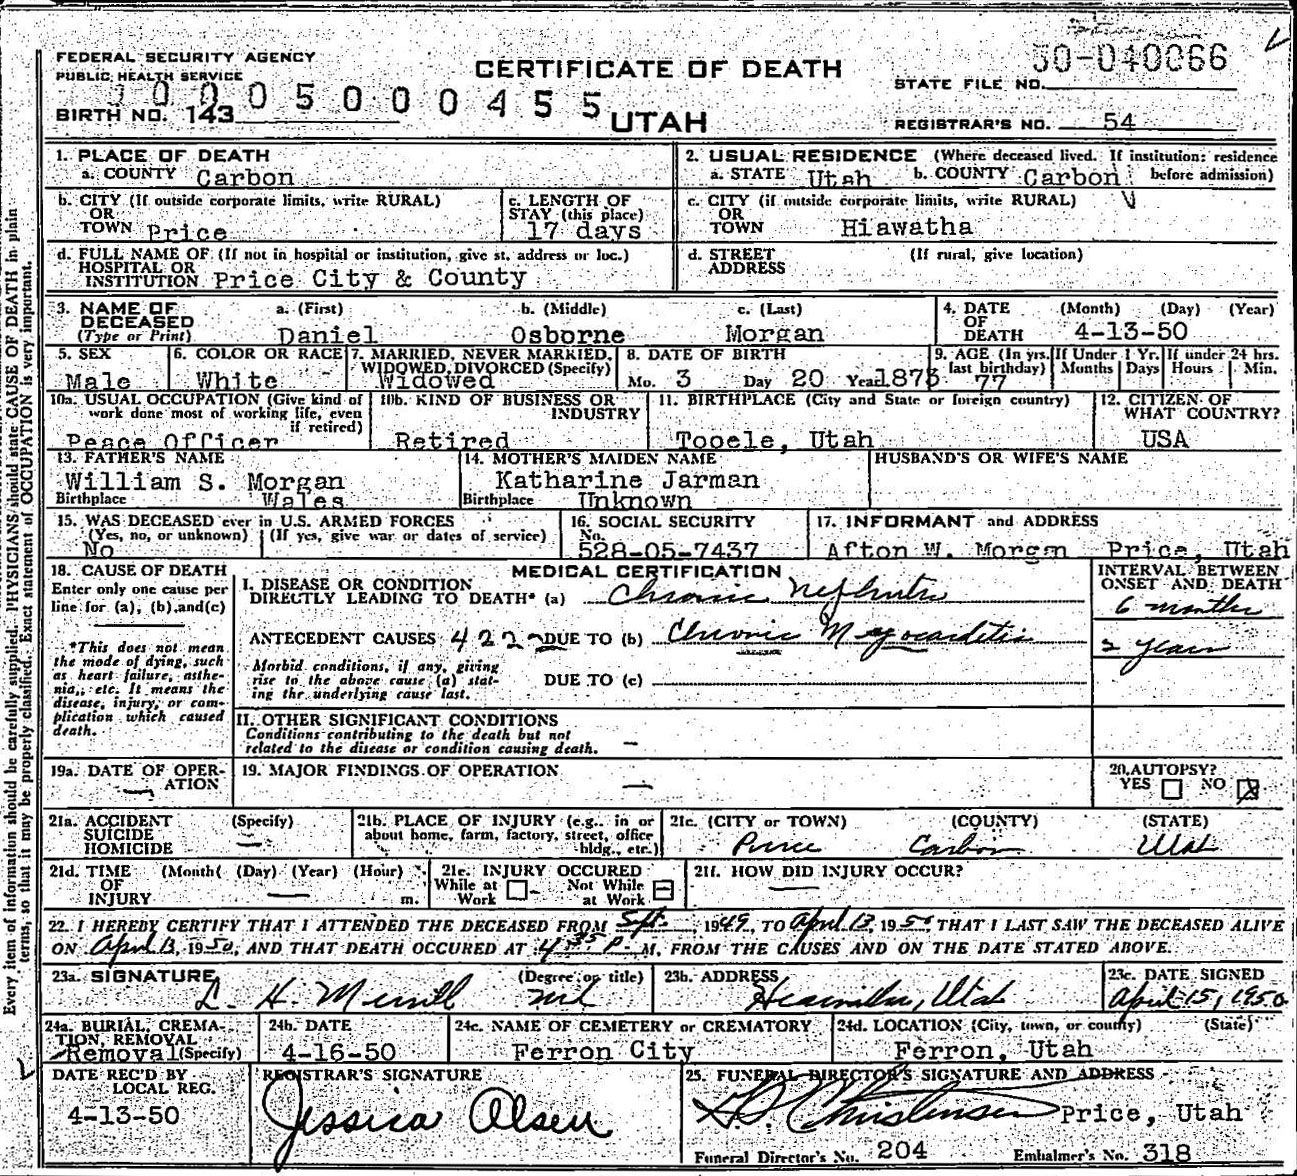 FEDERAL SECURITY AGENCY
PUBLIC HEALTH SERVICE
CERTIFICATE OF DEATH
50-040066
STATE FILE NO.
0005000455
BIRTH NO. 143
UTAH
REGISTRAR'S NO. 54
1. PLACE OF DEATH
a. COUNTY Carbon
2. USUAL RESIDENCE (Where deceased lived. If institution: residence before admission)
a. STATE Utah b. COUNTY Carbon
b. CITY (If outside corporate limits, write RURAL)
OR
TOWN Price
c. LENGTH OF
STAY (this place)
17 days
c. CITY (if outside corporate limits, write RURAL)
OR
TOWN Hiawatha
d. FULL NAME OF (If not in hospital or institution, give st. address or loc.)
HOSPITAL OR
INSTITUTION Price City & County
d. STREET
ADDRESS
(If rural, give location)
3. NAME OF
DECEASED
(Type or Print)
a. (First) b. (Middle) c. (Last)
Daniel Osborne Morgan
4. DATE
OF
DEATH
(Month) (Day) (Year)
4-13-50
5. SEX
Male
6. COLOR OR RACE
White
7. MARRIED, NEVER MARRIED,
WIDOWED, DIVORCED (Specify)
Widowed
8. DATE OF BIRTH
Mo. 3 Day 20 Year 1873
9. AGE (In yrs. last birthday)
77
If Under 1 Yr.
Months Days
If under 24 hrs.
Hours Min.
10a. USUAL OCCUPATION (Give kind of
work done most of working life, even
if retired)
Peace Officer
10b. KIND OF BUSINESS OR
INDUSTRY
Retired
11. BIRTHPLACE (City and State or foreign country)
Tooele, Utah
12. CITIZEN OF
WHAT COUNTRY?
USA
13. FATHER'S NAME
William S. Morgan
Birthplace Wales
14. MOTHER'S MAIDEN NAME
Katharine Jarman
Birthplace Unknown
HUSBAND'S OR WIFE'S NAME
15. WAS DECEASED ever in U.S. ARMED FORCES
(Yes, no, or unknown) (If yes, give war or dates of service)
No
16. SOCIAL SECURITY
No.
528-05-7437
17. INFORMANT and ADDRESS
Afton W. Morgan Price, Utah
18. CAUSE OF DEATH
Enter only one cause per
line for (a), (b), and (c)
*This does not mean
the mode of dying, such
as heart failure, asthe-
nia, etc. It means the
disease, injury, or com-
plication which caused
death.
MEDICAL CERTIFICATION
I. DISEASE OR CONDITION
DIRECTLY LEADING TO DEATH* (a) Chronic Nephritis
ANTECEDENT CAUSES 422 DUE TO (b) Chronic Myocarditis
Morbid conditions, if any, giving
rise to the above cause (a) stat-
ing the underlying cause last.
DUE TO (c)
II. OTHER SIGNIFICANT CONDITIONS
Conditions contributing to the death but not
related to the disease or condition causing death. —
INTERVAL BETWEEN
ONSET AND DEATH
6 months
2 years
19a. DATE OF OPER-
ATION
—
19. MAJOR FINDINGS OF OPERATION
—
20. AUTOPSY?
YES NO X
21a. ACCIDENT
SUICIDE
HOMICIDE
(Specify)
—
21b. PLACE OF INJURY (e.g., in or
about home, farm, factory, street, office
bldg., etc.)
21c. (CITY or TOWN) (COUNTY) (STATE)
Price Carbon Utah
21d. TIME
OF
INJURY
(Month) (Day) (Year) (Hour)
— m.
21e. INJURY OCCURED
While at
Work
Not While
at Work
21f. HOW DID INJURY OCCUR?
—
22. I HEREBY CERTIFY THAT I ATTENDED THE DECEASED FROM Sept., 1949, TO April 13, 1950 THAT I LAST SAW THE DECEASED ALIVE
ON April 13, 1950, AND THAT DEATH OCCURED AT 4:35 P. M, FROM THE CAUSES AND ON THE DATE STATED ABOVE.
23a. SIGNATURE (Degree or title)
L. H. Merrill md
23b. ADDRESS
Hiawatha, Utah
23c. DATE SIGNED
April 15, 1950
24a. BURIAL, CREMA-
TION, REMOVAL
Removal (Specify)
24b. DATE
4-16-50
24c. NAME OF CEMETERY or CREMATORY
Ferron City
24d. LOCATION (City, town, or county) (State)
Ferron, Utah
DATE REC'D BY
LOCAL REG.
4-13-50
REGISTRAR'S SIGNATURE
Jessica Olsen
25. FUNERAL DIRECTOR'S SIGNATURE AND ADDRESS
Christensen Price, Utah
Funeral Director's No. 204 Embalmer's No. 318
Every item of information should be carefully supplied. PHYSICIANS should state CAUSE OF DEATH in plain
terms, so that it may be properly classified. Exact statement of OCCUPATION is very important.